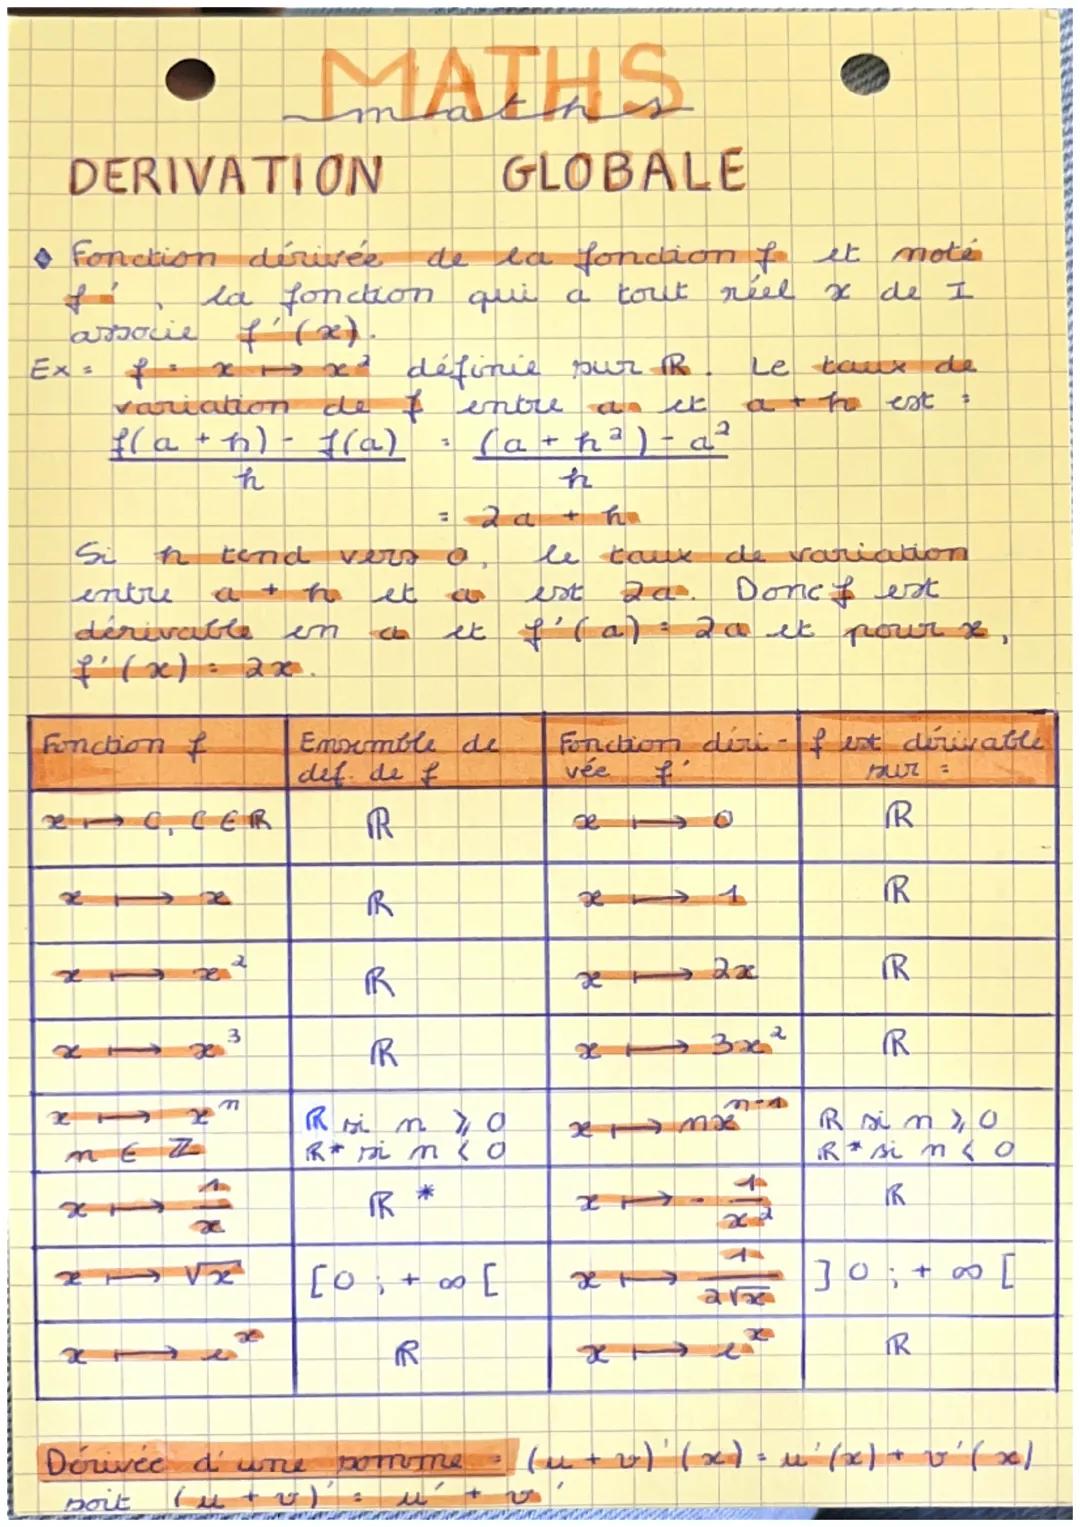 MATHS
maths
DERIVATION GLOBALE
Fonction dérivée de la fonction f et noté
f', la fonction qui a tout réel x de I
associe f'(x).
Ex = f : x ↦ x² définie sur ℝ. Le taux de
variation de f entre a et a + h est :
f(a + h) - f(a) = (a + h²) - a²
h h
= 2a + h
Si h tend vers 0, le taux de variation
entre a + h et a est 2a. Donc f est
dérivable en a et f'(a) = 2a et pour x,
f'(x) = 2x.
Fonction f | Ensemble de def. de f | Fonction déri-vée f' | f est dérivable sur :
x ↦ C, C ∈ ℝ | ℝ | x ↦ 0 | ℝ
x ↦ x | ℝ | x ↦ 1 | ℝ
x ↦ x² | ℝ | x ↦ 2x | ℝ
x ↦ x³ | ℝ | x ↦ 3x² | ℝ
x ↦ xⁿ n ∈ ℤ | ℝ si n ⩾ 0 ℝ* si n < 0 | x ↦ nxⁿ⁻¹ | ℝ si n ⩾ 0 ℝ* si n < 0
x ↦ 1/x | ℝ* | x ↦ - 1/x² | ℝ
x ↦ √x | [0 ; + ∞ [ | x ↦ 1/2√x | ]0 ; + ∞ [
x ↦ eˣ | ℝ | x ↦ eˣ | ℝ
Dérivée d'une somme = (u + v)'(x) = u'(x) + v'(x)
soit (u + v)' = u' + v'